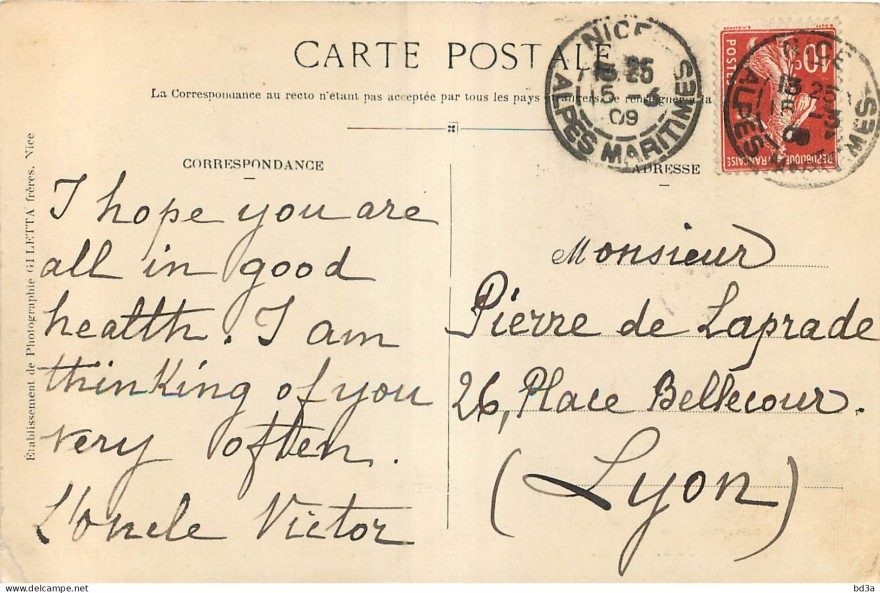 CARTE POSTALE
La Correspondance au recto n'étant pas acceptée par tous les pays étrangers, se renseigner à la
CORRESPONDANCE
ADRESSE
I hope you are
all in good
health. I am
thinking of you
very often.
L'oncle Victor
Monsieur
Pierre de Laprade
26, Place Bellecour.
(Lyon)
Etablissement de Photographie GILETTA frères, Nice
NICE
15-3
09
ALPES MARITIMES
10c
POSTES
REPUBLIQUE FRANÇAISE
NICE
ALPES MARITIMES
delcampe.net
bd3a